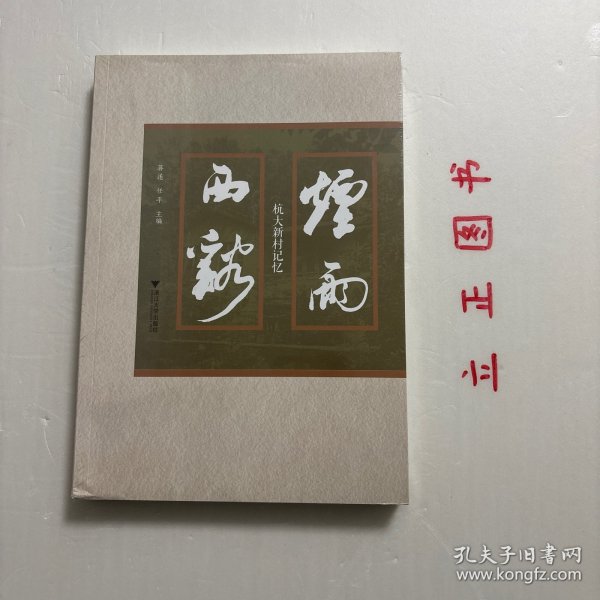 煙雨
西谿
杭大新村记忆
蒋遂 任平 主编
浙江大学出版社
立正图书
孔夫子旧书网
www.kongfz.com